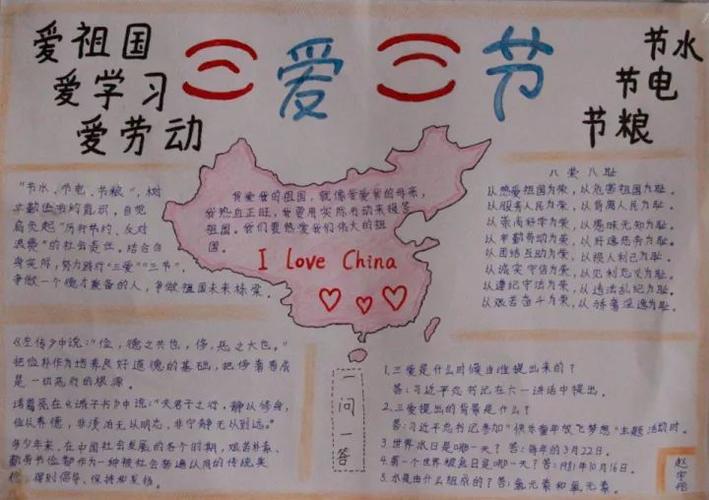 爱祖国
爱学习
爱劳动
三爱三节
节水
节电
节粮
"节水、节电、节粮",树
立勤俭节约的意识,自觉
肩负起"厉行节约、反对
浪费"的社会责任。结合自
身实际,努力践行"三爱""三节",
争做一个德才兼备的人,争做祖国未来栋梁。
我爱我的祖国,就像爱我的母亲,
我热血正旺,我要用实际行动来报答
祖国。我们要热爱我们伟大的祖
国。
I love China
八荣八耻
以热爱祖国为荣,以危害祖国为耻。
以服务人民为荣,以背离人民为耻。
以崇尚科学为荣,以愚昧无知为耻。
以辛勤劳动为荣,以好逸恶劳为耻。
以团结互助为荣,以损人利己为耻。
以诚实守信为荣,以见利忘义为耻。
以遵纪守法为荣,以违法乱纪为耻。
以艰苦奋斗为荣,以骄奢淫逸为耻。
《左传》中说:"俭,德之共也,侈,恶之大也。"
把俭朴作为培养良好道德的基础,把侈奢看成
是一切恶行的根源。
诸葛亮在《诫子书》中说:"夫君子之行,静以修身,
俭以养德,非淡泊无以明志,非宁静无以致远。"
多少年来,在中国社会发展的各个时期,艰苦朴素、
勤劳节俭都作为一种被社会普遍认同的传统美
德,得到倡导、保持和发扬。
一问一答
1.三爱是什么时候由谁提出来的?
答:习近平总书记在六一讲话中提出。
2.三爱提出的背景是什么?
答:习近平总书记参加"快乐童年放飞梦想"主题活动时。
3.世界水日是哪一天?答:每年的3月22日。
4.第一个世界粮食日是哪一天?答:1981年10月16日。
5.水是由什么组成的?答:氢元素和氧元素。